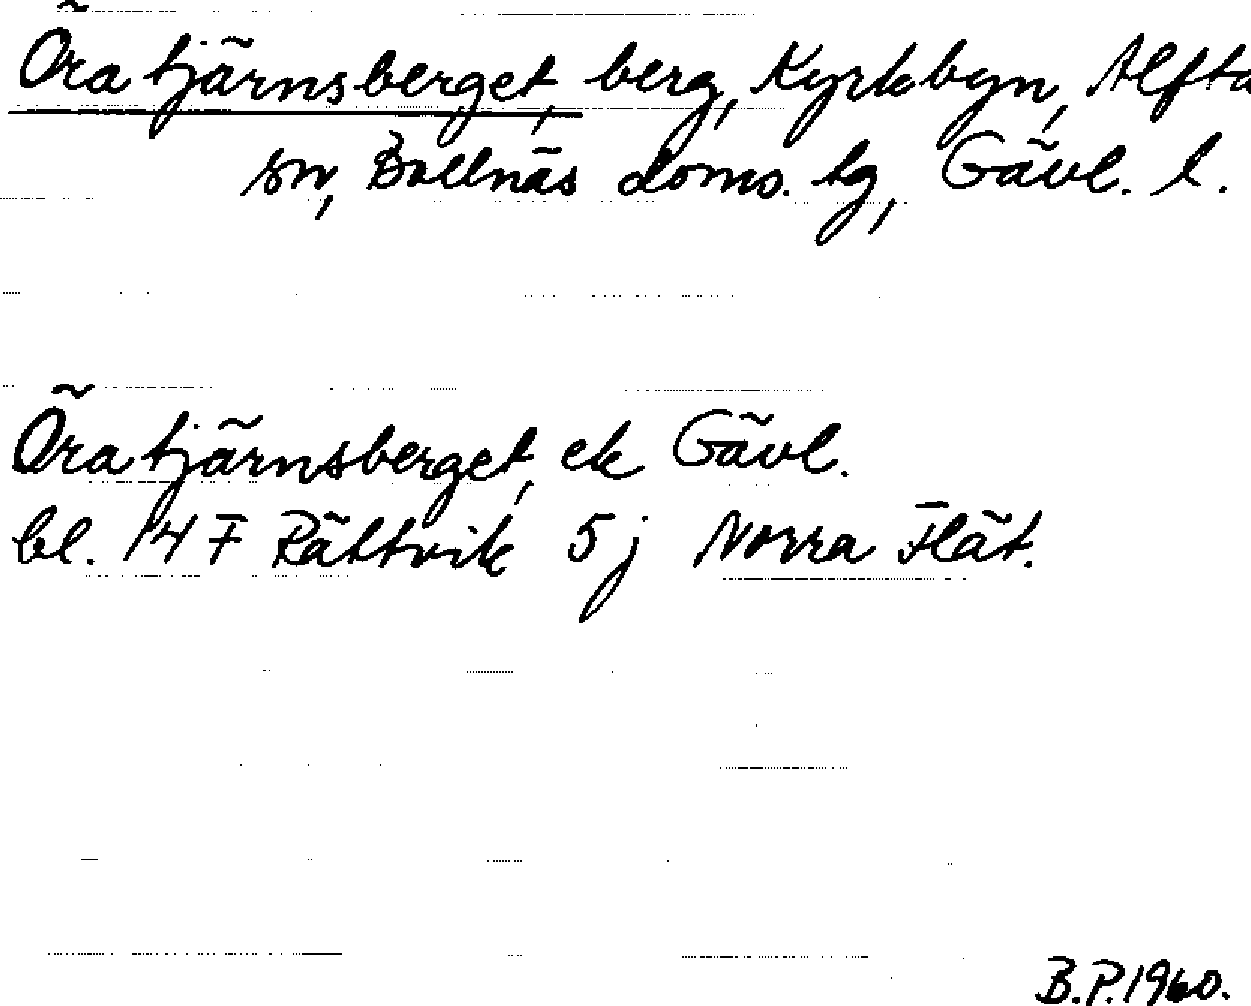 Öratjärnsberget, berg, Kyrkbyn, Alfta
sn, Bollnäs doms. tg, Gävl. l.
Öratjärnsberget, ek Gävl.
bl. 14 F Rättvik 5 j Norra Flät.
B.P. 1960.